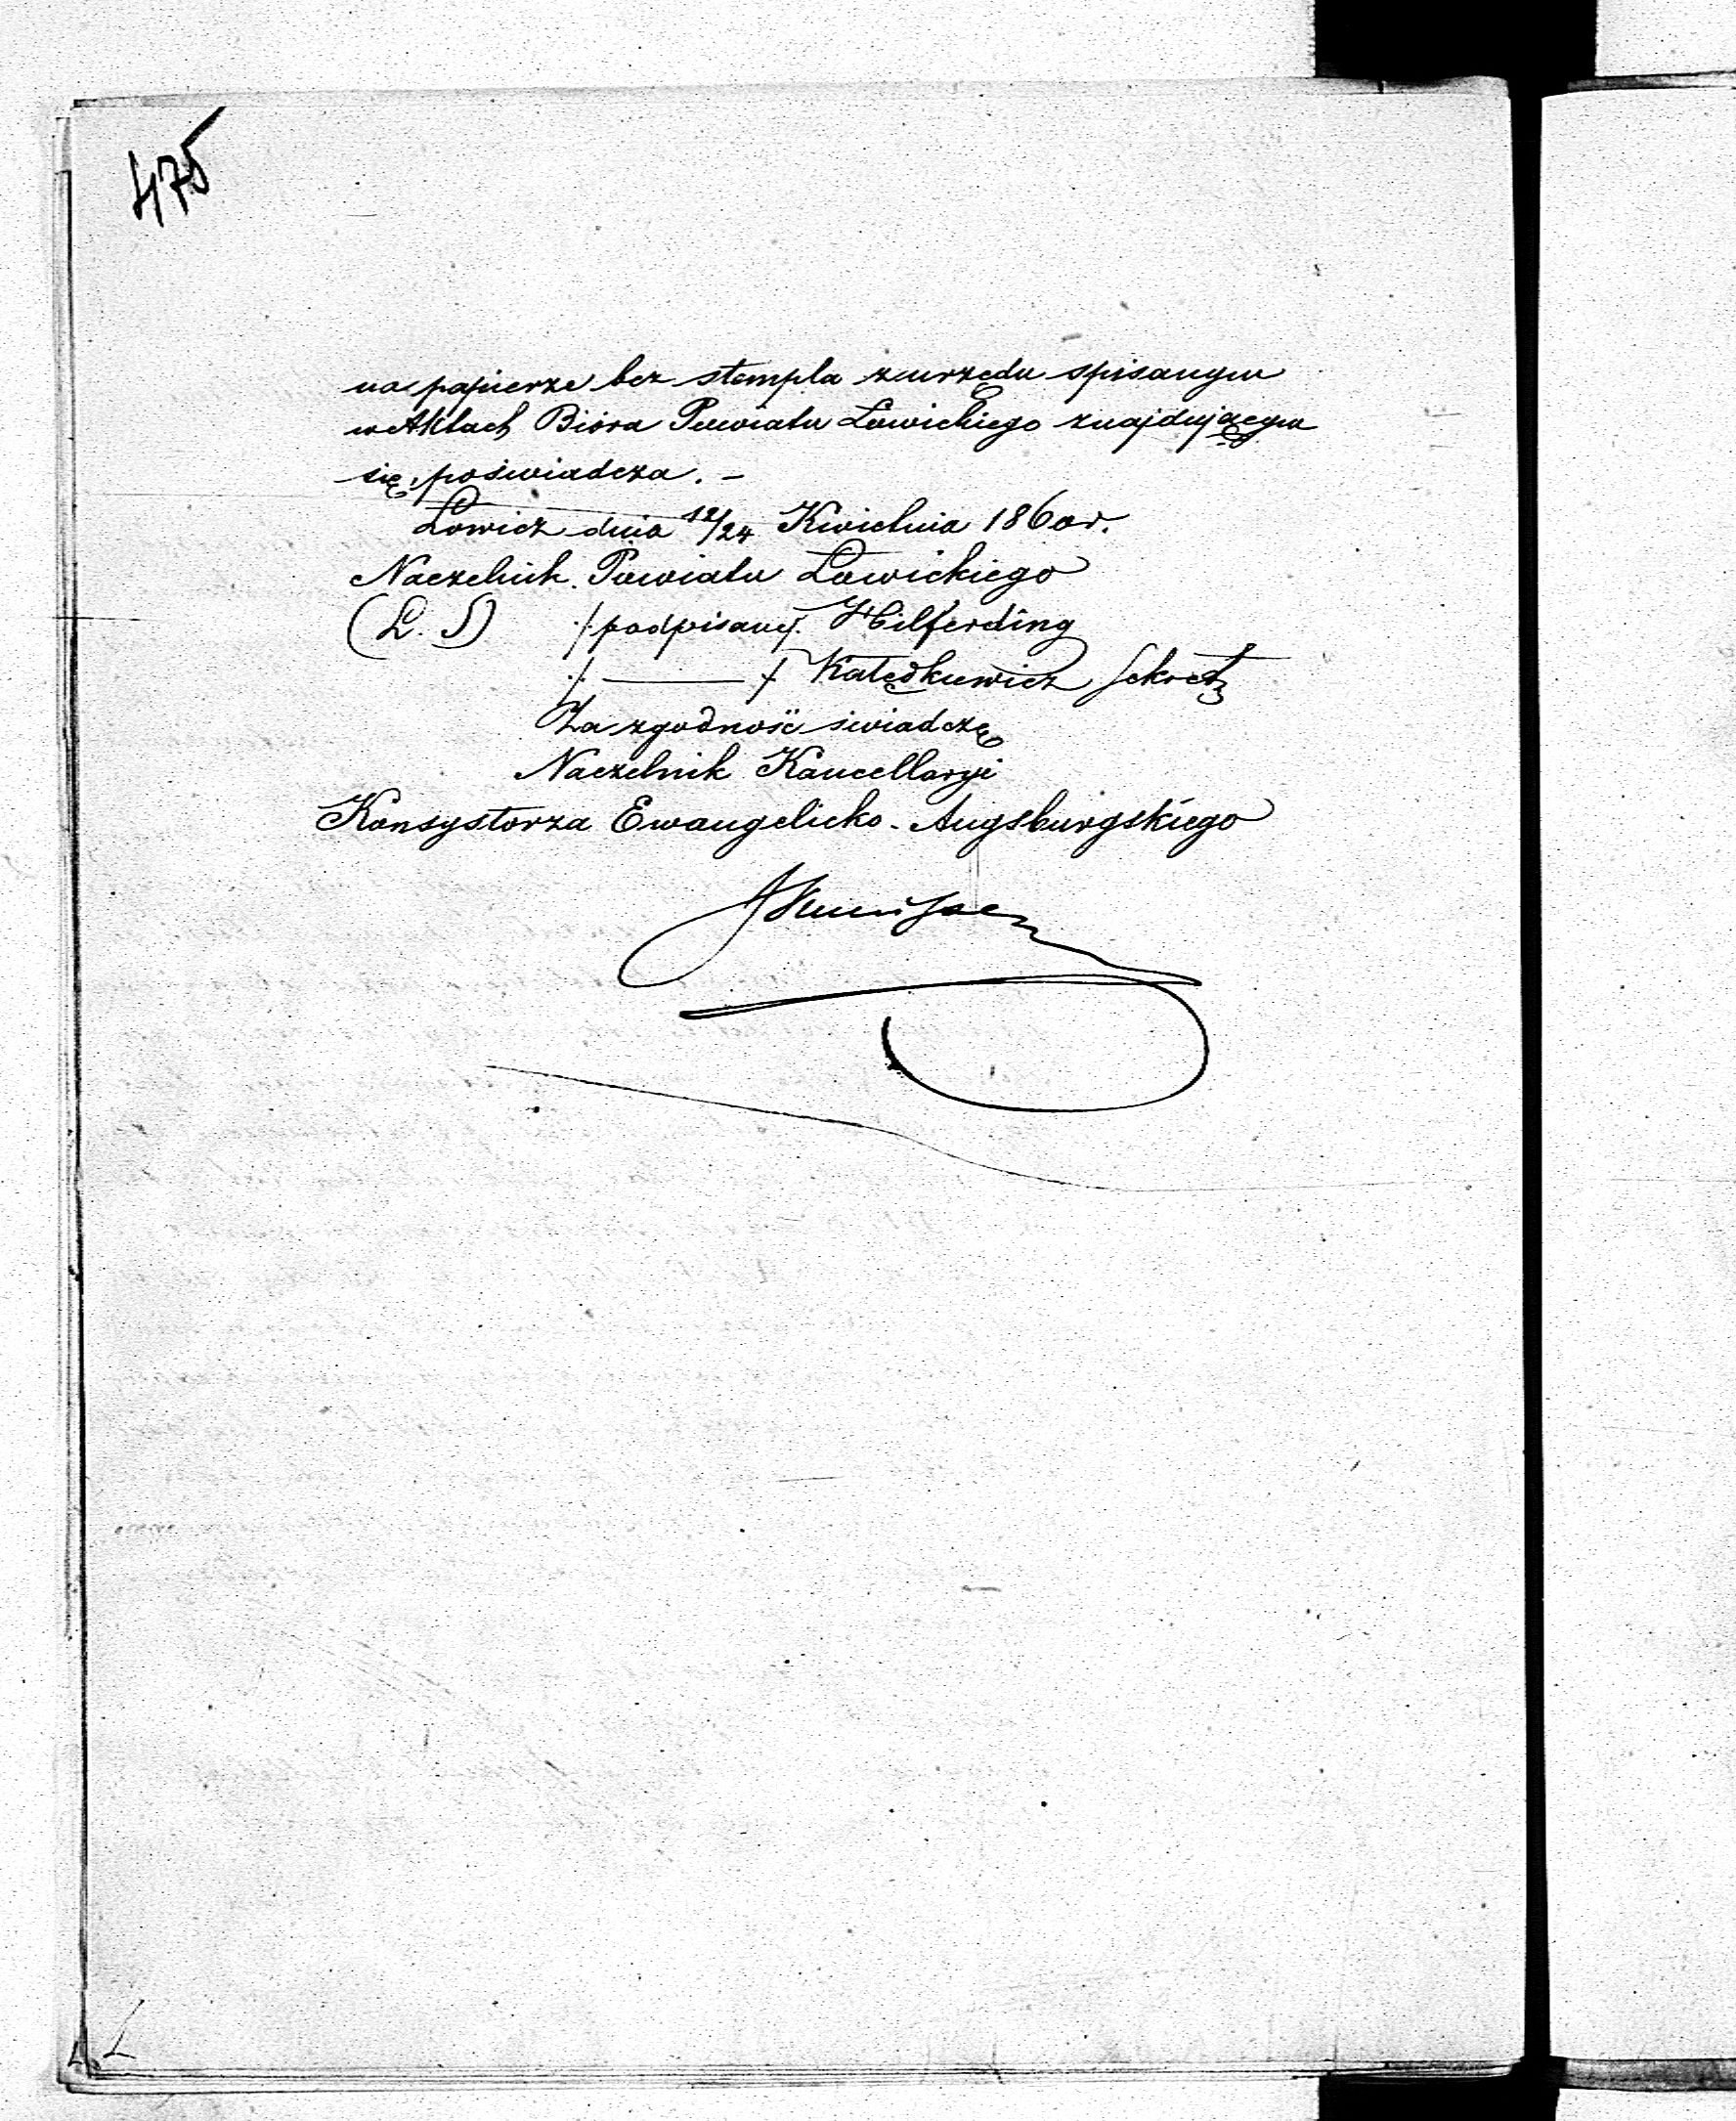 475
na papierze bez stempla z urzędu spisanym
w Aktach Bióra Powiatu Łowickiego znajdującym
się, poświadcza. -
Łowicz dnia 12/24 Kwietnia 1860 r.
Naczelnik Powiatu Łowickiego
(L. S) /podpisany/. Hilferding
/ ——— / Sekret
Za zgodność świadczę
Naczelnik Kancellaryi
Konsystorza Ewangelicko-Augsburgskiego